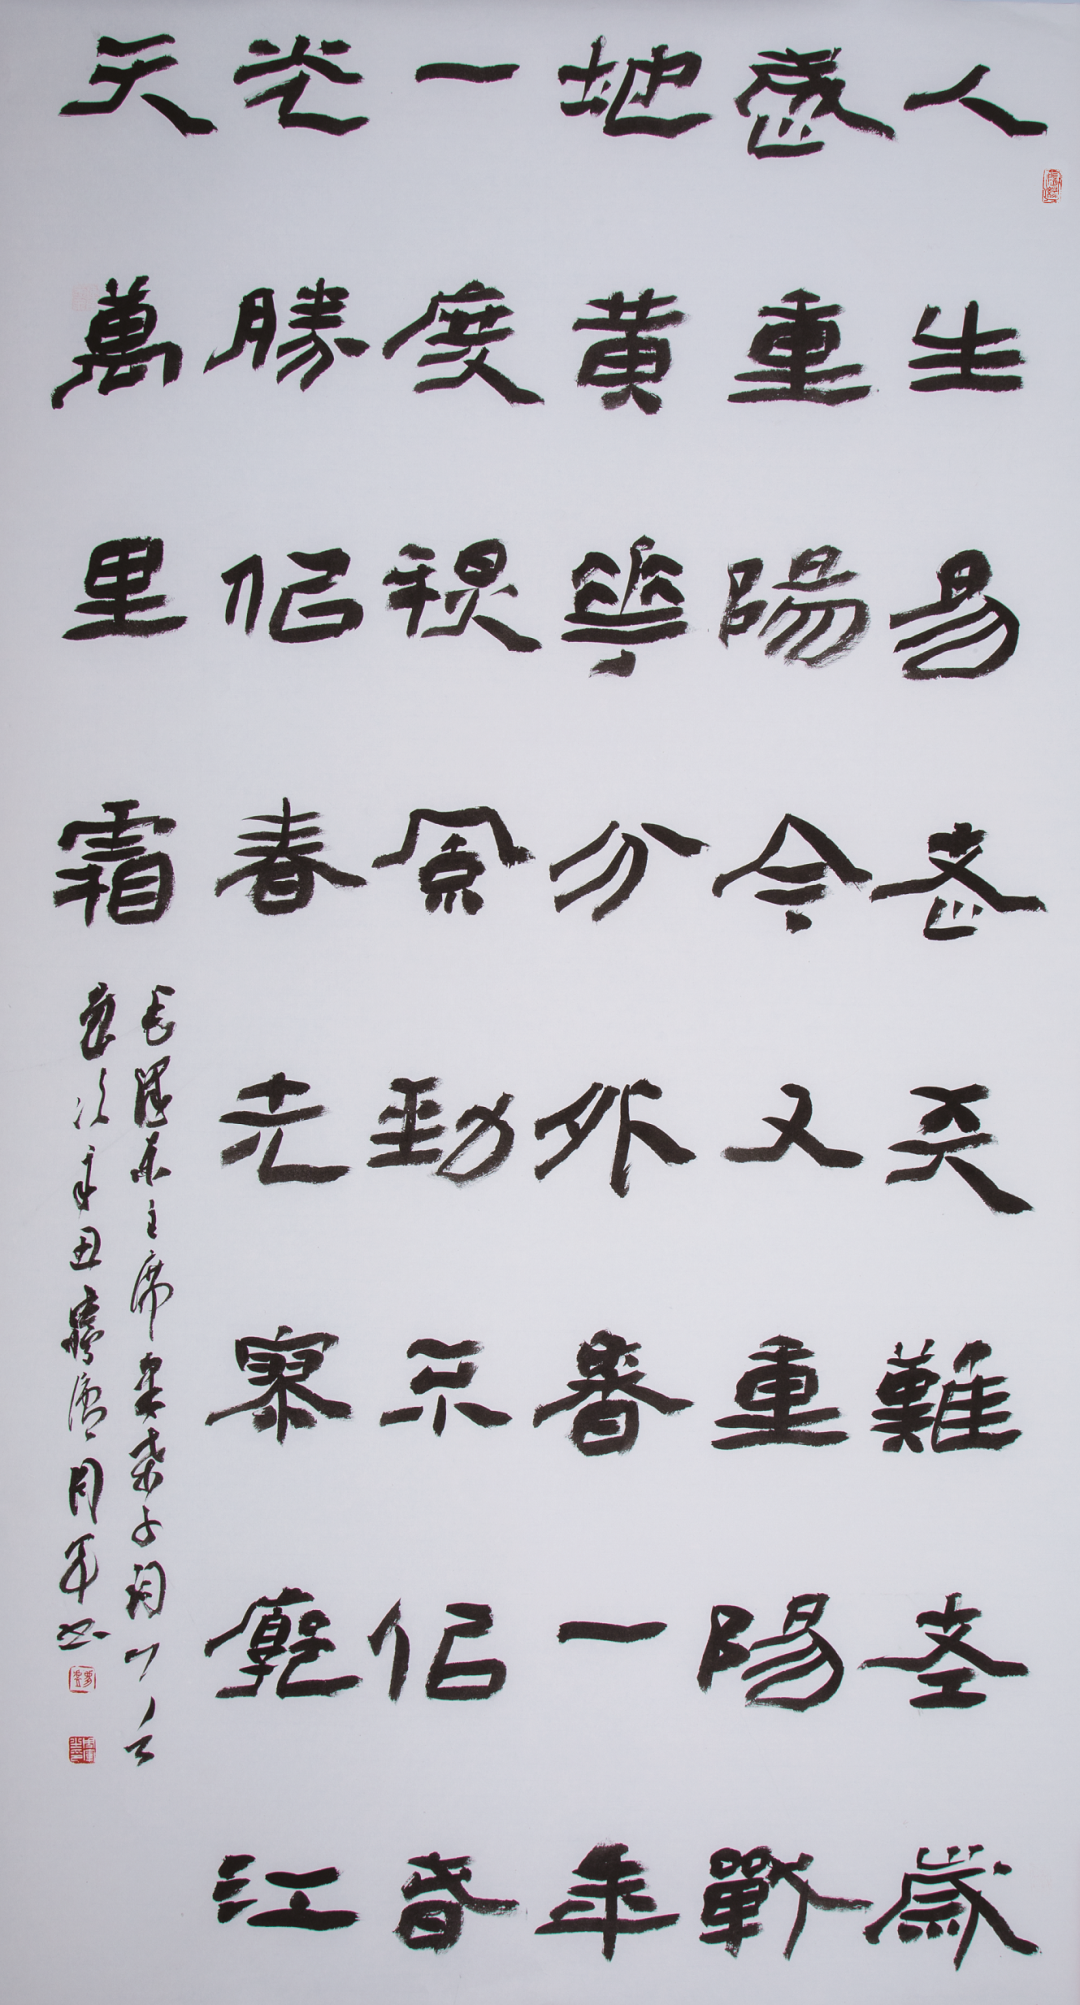 人生易老天難老歲
歲重陽今又重陽戰
地黄華分外香一年
一度秋風勁不似春
光勝似春光寥廓江
天萬里霜
毛澤東主席采桑子詞
歲次辛丑